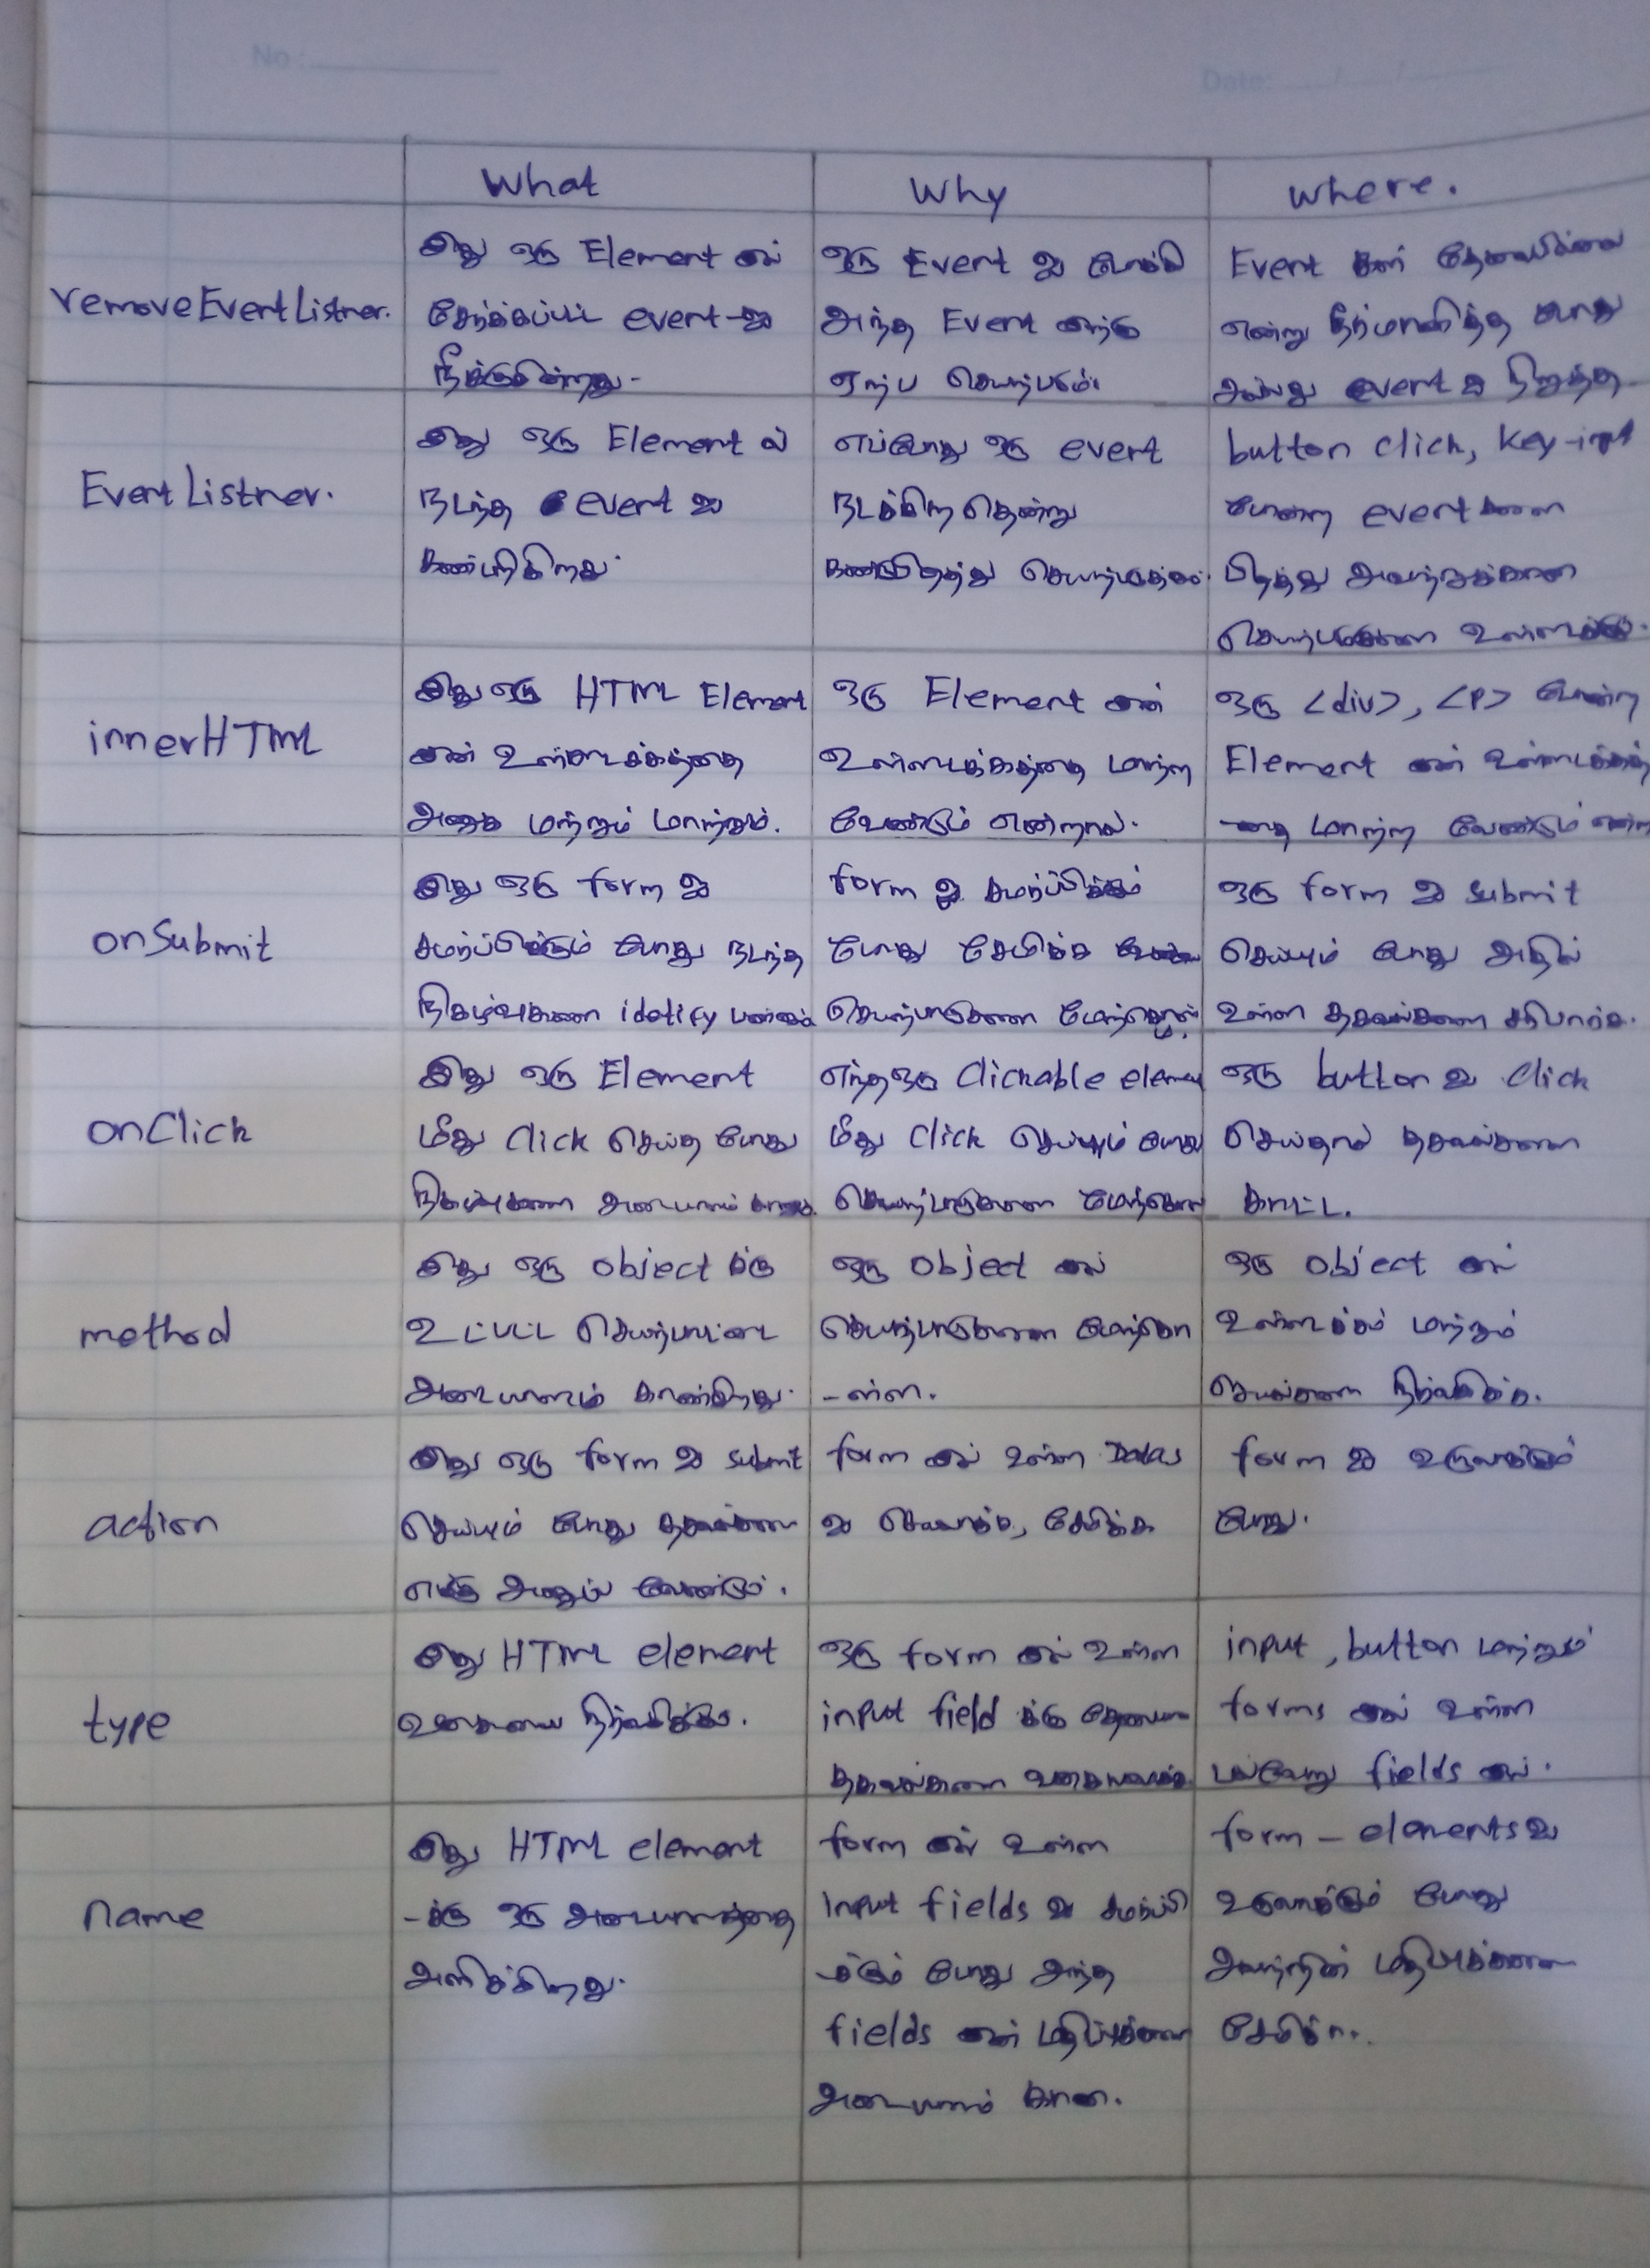 No :
Date: / /
What
Why
Where.
removeEventListner.
இது ஒரு Element இல்
சேர்க்கப்பட்ட event-ஐ
நீக்குகின்றது.
ஒரு Event ஐ
அந்த Event
ஏற்ப செயற்படும்
Event கள் தேவையில்லை
என்று தீர்மானித்த போது
அல்லது event ஐ நிறுத்த
EventListner.
இது ஒரு Element ல்
நடந்த event ஐ
கண்டறிகிறது.
எப்போது ஒரு event
நடக்கிற தென்று
கண்டுபிடித்து
button click, key-input
போன்ற event களை
பிடித்து அவற்றுக்கான
innerHTML
இது ஒரு HTML Element
இன் உள்ளடக்கத்தை
மற்றும் மாற்றும்.
ஒரு Element இன்
உள்ளடக்கத்தை மாற்ற
வேண்டும் என்றால்.
ஒரு <div>, <p> போன்ற
Element இன் உள்ளடக்கத்
-தை மாற்ற வேண்டும்
onSubmit
இது ஒரு form ஐ
சமர்ப்பிக்கும் போது நடந்த
நிகழ்வுகளை idetify
form ஐ சமர்ப்பிக்கும்
போது சேமிக்க
செயற்பாடுகளை
ஒரு form ஐ submit
செய்யும் போது அதில்
உள்ள தகவல்களை சரிபார்க்க.
onClick
இது ஒரு Element
மீது click செய்த போது
நிகழ்வுகளை அடையாளம்
எந்த ஒரு Clickable element
மீது click செய்யும் போது
செயற்பாடுகளை மேற்கொள
ஒரு button ஐ click
செய்தால் தகவல்களை
காட்ட.
method
இது ஒரு object க்கு
உட்பட்ட செயற்பாட்டை
அடையாளம் காண்கிறது.
ஒரு object இல்
செயற்பாடுகளை மேற்கொ
-ள்ள.
ஒரு object இல்
உள்ளடக்கம் மற்றும்
செயல்களை நிர்வகிக்க.
action
இது ஒரு form ஐ submit
செய்யும் போது தகவல்களை
எங்கு அனுப்ப வேண்டும்.
form இல் உள்ள Datas
ஐ செயலாக்க, சேமிக்க
form ஐ உருவாக்கும்
போது.
type
இது HTML element
வகையை நிர்வகிக்கும்.
ஒரு form இல் உள்ள
input field க்கு தேவையான
தகவல்களை வகைப்படுத்த
input , button மற்றும்
forms இல் உள்ள
பல்வேறு fields இல்.
name
இது HTML element
-க்கு ஒரு அடையாளத்தை
அளிக்கிறது.
form இல் உள்ள
input fields ஐ சமர்ப்பி
-க்கும் போது அந்த
fields இன் மதிப்புக்களை
அடையாளம் காண.
form - elements ஐ
உருவாக்கும் போது
அவற்றின் மதிப்புக்களை
சேமிக்க.